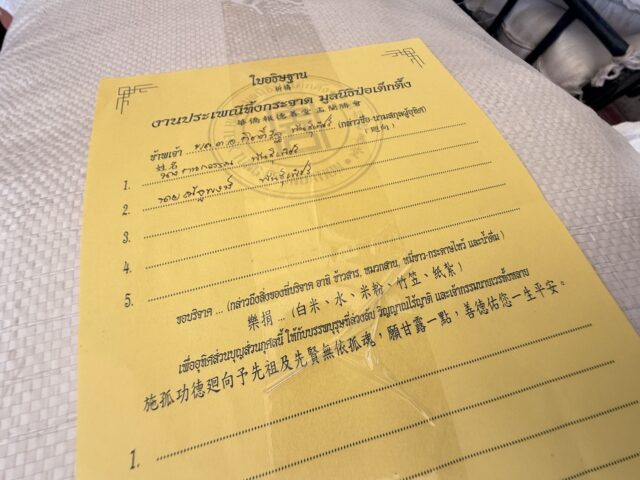 ใบอธิษฐาน
祈禱
งานประเพณีทิ้งกระจาด มูลนิธิป่อเต็กตึ๊ง
華僑報德善堂盂蘭勝會
ข้าพเจ้า (กล่าวชื่อ-นามสกุลผู้อุทิศ)
姓名 (迴向)
1.
2.
3.
4.
5.
ขอบริจาค ... (กล่าวถึงสิ่งของที่บริจาค อาทิ ข้าวสาร, หมวกสาน, หมี่ขาว-กระดาษไหว้ และน้ำดื่ม)
樂捐 ... (白米、水、米粉、竹笠、紙紮)
เพื่ออุทิศส่วนบุญส่วนกุศลนี้ ให้กับบรรพบุรุษที่ล่วงลับ วิญญาณไร้ญาติ และเจ้ากรรมนายเวรทั้งหลาย
施孤功德迴向予先祖及先賢無依孤魂，願甘露一點，善德佑您一生平安。
1.